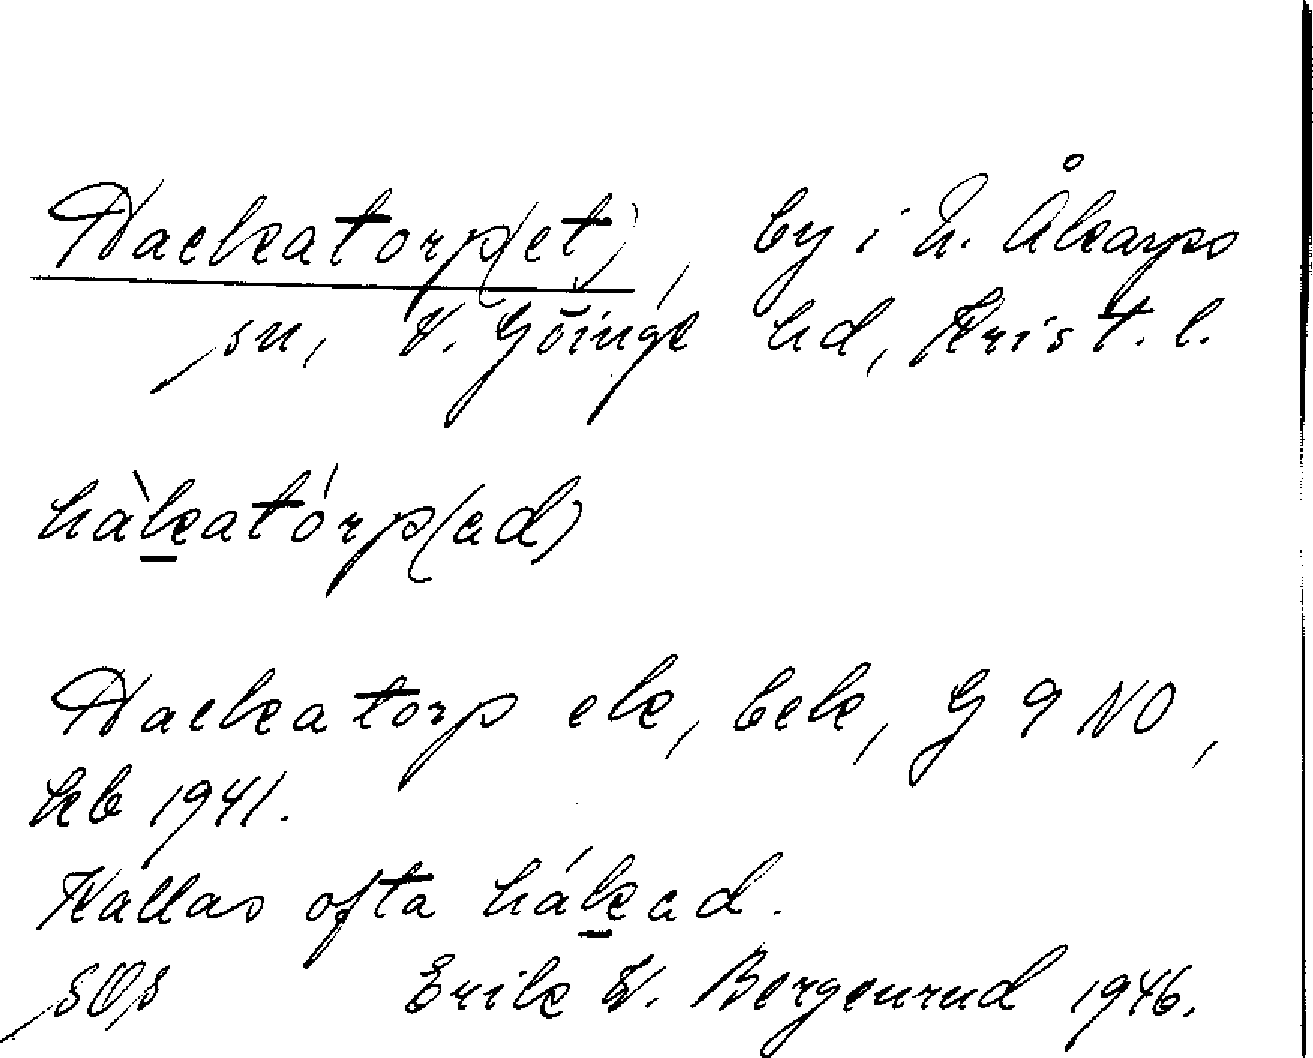 Hackatorp(et), by i N. Åkarps
sn, V. Göinge hd, Krist. l.
hàk̲atórp(ad)
Hackatorp ek, bek, G 9 NO,
kb 1941.
Kallas ofta hák̲ad.
SOS Erik W. Bergenrud 1946.